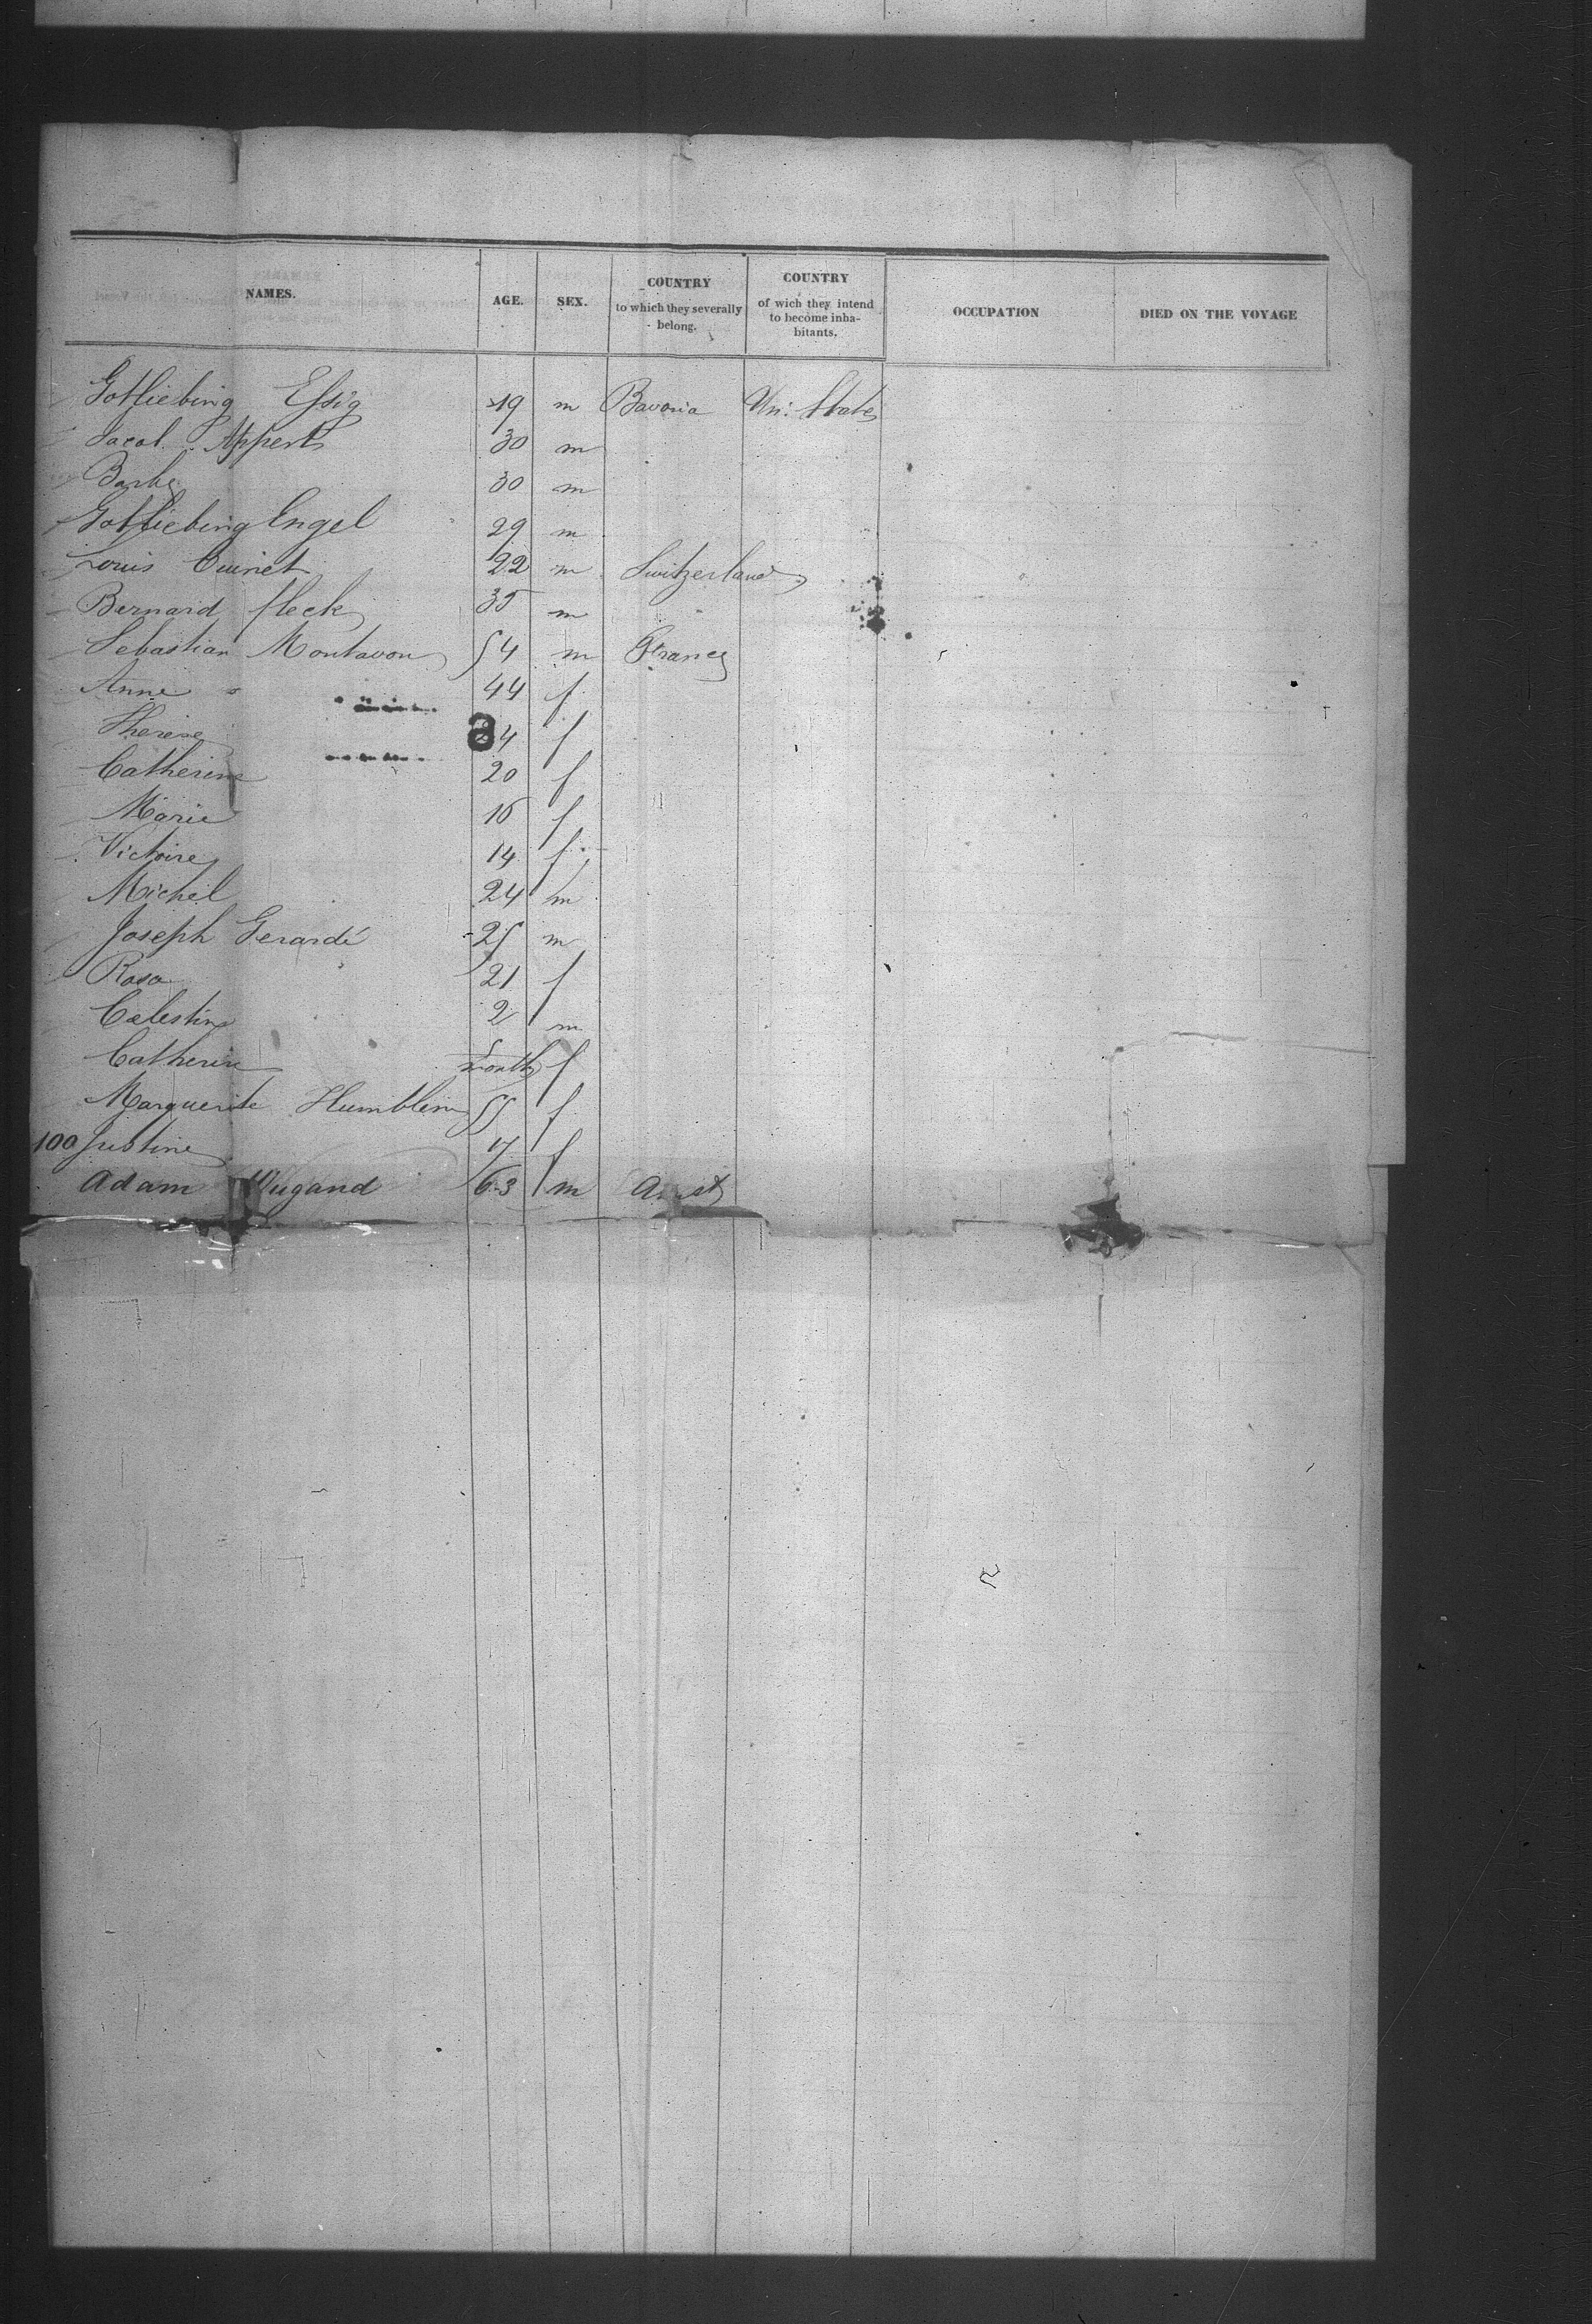 NAMES. AGE. SEX. COUNTRY to which they severally belong. COUNTRY of wich they intend to become inhabitants. OCCUPATION DIED ON THE VOYAGE
Gottliebing Essig 19 m Bavaria Un: States
Jacob Appert 30 m
Barbe 30 m
Gottliebing Engel 29 m
Louis Cuinet 22 m Switzerland
Bernard fleck 35 m
Sebastian Montavon 54 m France
Anne " 44 f
Therese 24 f
Catherine 20 f
Marie 16 f
Victoire 14 f
Michel 24 m
Joseph Gerardé 25 m
Rosa 21 f
Celestin 2 m
Catherin 5 months f
Marguerite Humblem 55 f
100 Justine 17 f
Adam Wugand 63 m